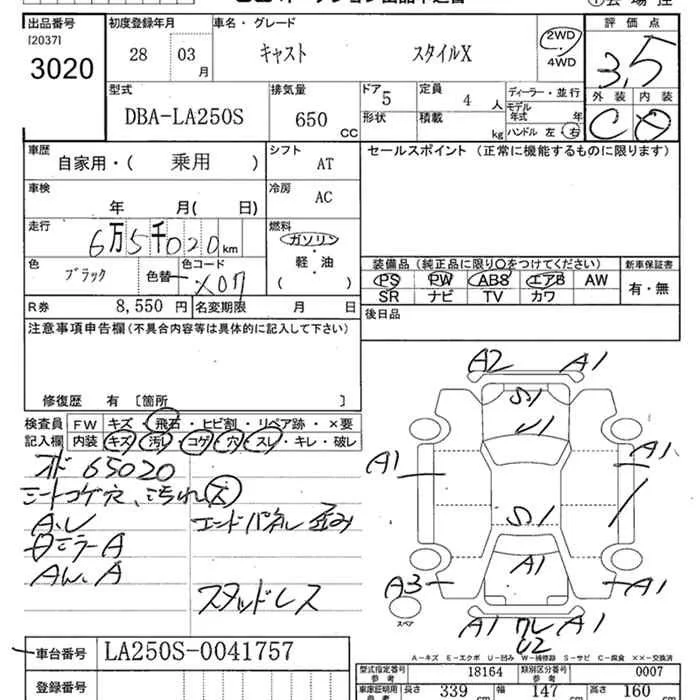 出品番号 初度登録年月 車名・グレード 評価点
[2037]
3020 28 03月 キャスト スタイルX 2WD・4WD 3.5
型式 排気量 ドア 5 定員 4人 ディーラー・並行 外装 内装
DBA-LA250S 650CC 形状 積載 kg モデル年式 年 C
ハンドル 左・右
車歴 自家用・( 乗用 ) シフト AT セールスポイント (正常に機能するものに限ります)
車検 年 月( 日) 冷房 AC
走行 6万5千020km 燃料 ガソリン 軽・油 ( )
色 ブラック 色替 色コード X07
装備品 (純正品に限り○をつけてください) 新車保証書
PS PW ABS エアB AW 有・無
SR ナビ TV カワ
R券 8,550円 名変期限 月 日 後日品
注意事項申告欄(不具合内容等は具体的に記入して下さい)
修復歴 有 [箇所 ]
検査員記入欄 FW キズ・飛石・ヒビ割・リペア跡・×要
内装 キズ・汚レ・コゲ・穴・スレ・キレ・破レ
65020
シートコゲ穴、汚れ
エンドパネル歪み
ミラーA
スタッドレス
A2 A1
S1
U1
A1 A1
S1
A1
A3 A1
スペア
A1 ワレ A1
U2
A-キズ E-エクボ U-凹み W-補修跡 S-サビ C-腐食 ××-交換済
車台番号 LA250S-0041757
登録番号
型式指定番号 参考 18164 類別区分番号 参考 0007
車庫証明用 参考 長さ 339cm 幅 147cm 高さ 160cm